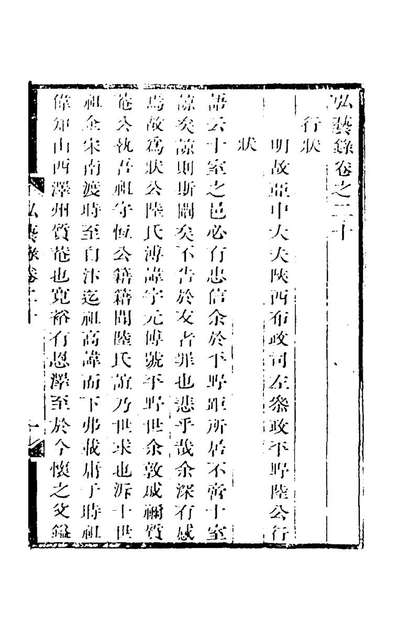 弘藝錄卷之二十
行狀
明故亞中大夫陝西布政司左叅政平野陸公行
狀
語云十室之邑必有忠信余於平野距所居不啻十室
諒矣諒則斯聞矣不告於友者罪也悲乎哉余深有感
焉故爲狀公陸氏溥諱字元傅號平野世余敦戚禰質
菴公執吾祖守恆公籍籍間陸氏誼乃世求也泝十世
祖金宋南渡時至自汴迄祖高諱而下弗載庸于時祖
偉知山西澤州質菴也寬裕有恩澤至於今懷之父鎰
弘藝錄卷二十
一